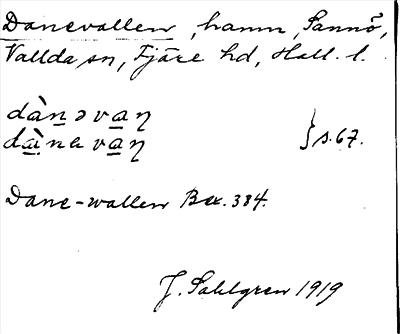 Danevallen, hamn, Sannö,
Vallda sn, Fjäre hd, Hall. l.
dànəvaꞑ
dànavaꞑ } s. 67.
Dane-wallen Bex. 384.
J. Sahlgren 1919